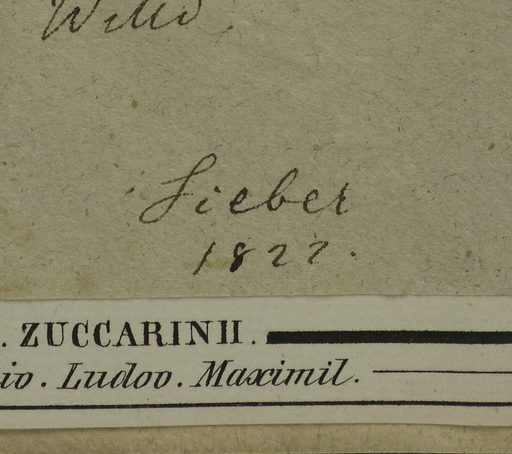 Willd.
Sieber
1822.
. ZUCCARINII.
io. Ludov. Maximil.